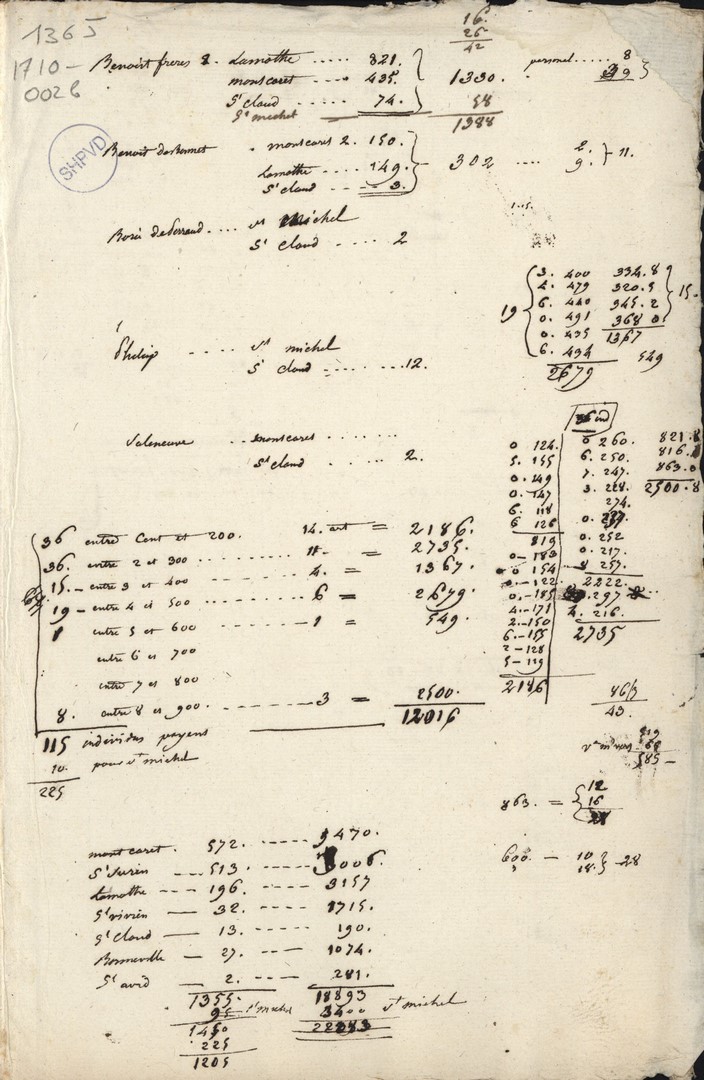 1365
1710-
0026
16.
26
42
Benoist freres 2. Lamothe ..... 821.
montcaret .... 435. 1330.
St Cloud ..... 74. 58
St michel 1388
personel ...... 8
SHPVD
montcaret 2. 150.
Lamothe .... 149. 302 .... 2. 9. 11.
St Cloud ---- 3.
St michel
St Cloud .... 2
19
3. 400 334.8
4. 479 320.5
6. 440 345.2
0. 491 368 0
0. 435 1367
6. 434 549
2679
15.
Philip ..... St michel
St Cloud ........ 12.
Valeneuve .. montcaret .......
St Cloud ..... 2.
0 124.
5. 155
0. 149
0. 147
6. 118
6 126
819
0-183
0 154
0-122
0.-185
4.-171
2.-150
6.-155
2-128
5-119
2186
6 260.
6. 250.
7. 247.
3. 228.
274.
0. 252
0. 217.
8 257.
2222.
297
4. 216.
2735
821.8
816.
863.0
2500.8
36 entre Cent et 200. 14. art = 2186.
36. entre 2 et 300 .......... 11. = 2735.
15. - entre 3 et 400 ........ 4. = 1367.
19 - entre 4 et 500 ........ 6 = 2679.
1 entre 5 et 600 ......... 1 = 549.
entre 6 et 700
entre 7 et 800
8. entre 8 et 900 ........ 3 = 2500.
12016
115 individus payens
10. pour St michel
225
463
43.
519
585
863. = 12 16 28
600. - 10 18. 28
montcaret. 572. ---- 9470.
St Surin ---- 513. ---- 3006.
Lamothe --- 196. ---- 3157
St vivien --- 32. ---- 1715.
St Cloud --- 13. ---- 190.
Bonneville - 27. ---- 1074.
St avid --- 2. ---- 281.
1355. 18893
95 St michel 3400 St michel
1450 22293
225
1205